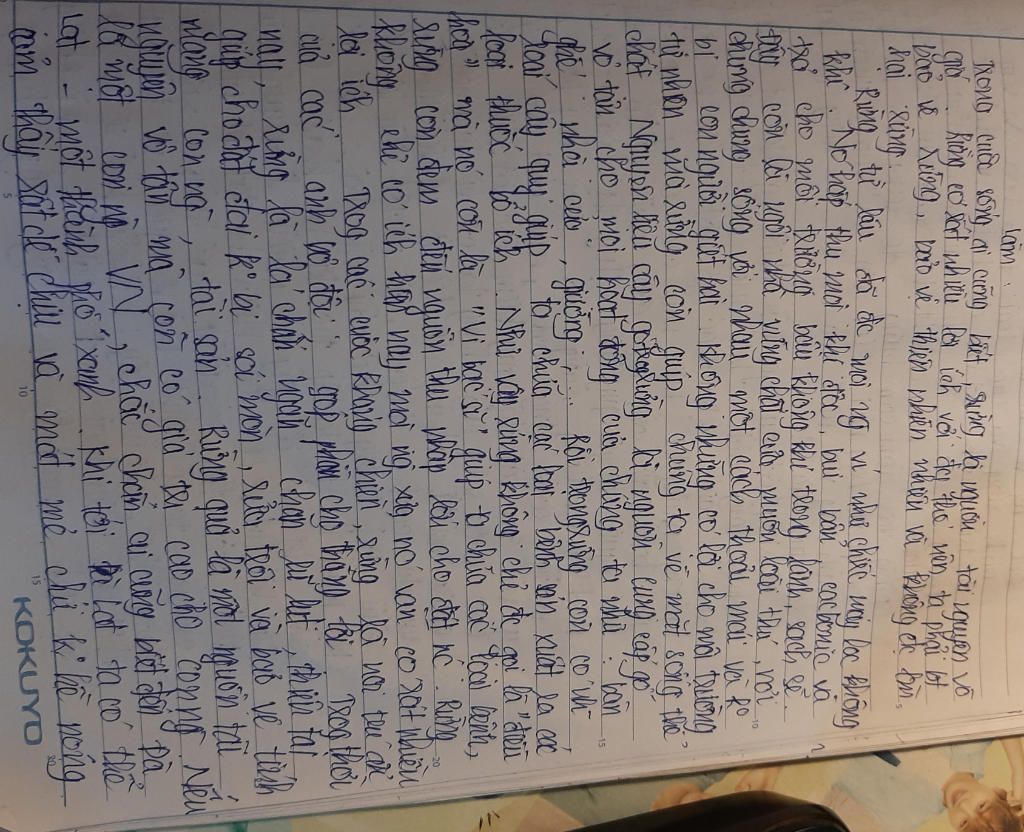 lâm.
Trong cuộc sống ai cũng biết, rừng là nguồn tài nguyên vô
giá. Rừng có rất nhiều lợi ích với đ/s cho nên ta phải
bảo vệ rừng, bảo vệ thiên nhiên nhiều và không đc
hại rừng.
Rừng từ lâu đã đc mọi ng ví như chiếc máy lọc không
khí. Nó hấp thu mọi khí độc, bụi bẩn, cacbonic và
trả cho môi trường bầu không khí trong lành, sạch sẽ.
Đây còn là ngôi nhà vững chãi của muôn loài thú, nơi
chúng chung sống với nhau một cách thoải mái và ko
bị con người giết hại. Không những có lợi cho môi trường
tự nhiên mà rừng còn giúp chúng ta về mặt sống thể
chất. Nguyên liệu cây gỗ rừng là nguồn cung cấp gỗ
vô tận cho mọi hoạt động của chúng ta như: bàn
ghế, nhà cửa, giường.... Rồi trong rừng còn có
loài cây quý giúp ta chữa các loại bệnh, sản xuất ra các
loại thuốc bổ ích. Như vậy rừng không chỉ đc gọi là "điều
hoà" mà nó còn là "vị bác sĩ" giúp ta chữa các loại bệnh,
rừng còn đem đến nguồn thu nhập lớn cho đất nc. Rừng
không chỉ có ích ngày nay mà ng xưa nó vẫn có rất nhiều
lợi ích. Trog các cuộc kháng chiến, rừng là nơi trú ẩn
của các anh bộ đội góp phần cho thắng lợi. Trog thời
nay, rừng là lá chắn ngăn chặn lũ lụt, thiên tai,
giúp cho đất đai ko bị sói mòn, sửa trôi và bảo vệ tính
mạng con ng, tài sản. Rừng quả là một nguồn tài
nguyên vô tận mà còn có giá trị cao cho con ng. Nếu
là một con ng VN, chắc chắn ai cũng biết đến Đà
Lạt - một thành phố xanh. Khi tới Đà Lạt ta có thể
cảm thấy rất dễ chịu và mát mẻ chứ ko hề nóng
KOKUYO
5
10
15
20
5
10
15
20